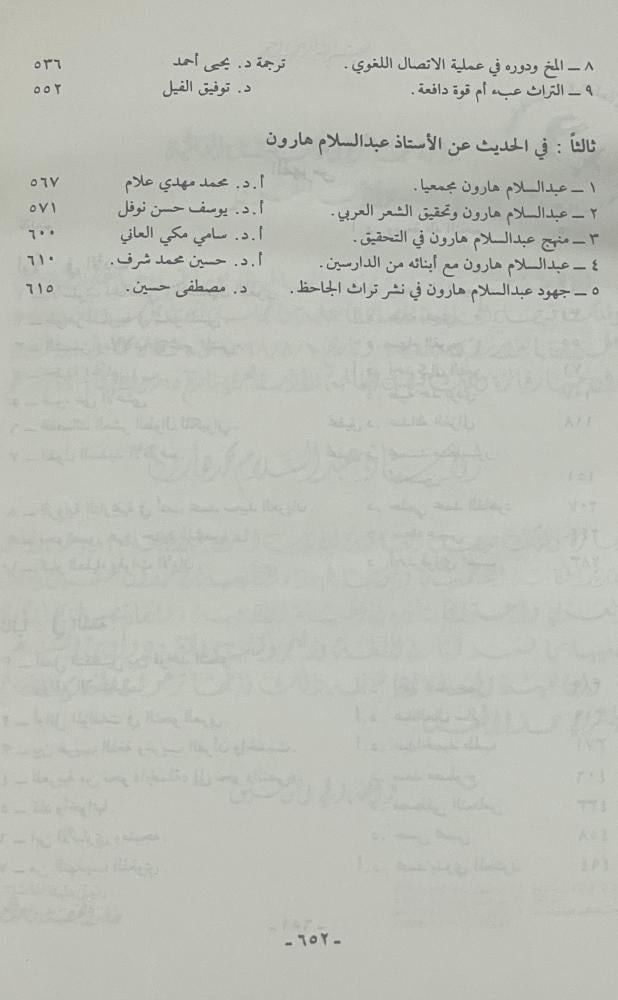 ٨ ــ المخ ودوره في عملية الاتصال اللغوي . ترجمة د. يحيى أحمد ٥٣٦
٩ ــ التراث عبء أم قوة دافعة . د. توفيق الفيل ٥٥٢
ثالثاً : في الحديث عن الأستاذ عبدالسلام هارون
١ ــ عبدالسلام هارون مجمعيا . أ.د. محمد مهدي علام ٥٦٧
٢ ــ عبدالسلام هارون وتحقيق الشعر العربي . أ.د. يوسف حسن نوفل ٥٧١
٣ ــ منهج عبدالسلام هارون في التحقيق . أ.د. سامي مكي العاني ٦٠٠
٤ ــ عبدالسلام هارون مع أبنائه من الدارسين . أ.د. حسين محمد شرف . ٦١٠
٥ ــ جهود عبدالسلام هارون في نشر تراث الجاحظ . د. مصطفى حسين . ٦١٥
ــ ٦٥٢ ــ